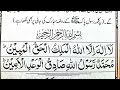 بسم اللہ الرحمن الرحیم
لَا اِلٰهَ اِلَّا اللهُ الْمَلِكُ الْحَقُّ الْمُبِيْنُ
مُحَمَّدٌ رَّسُوْلُ اللهِ صَادِقُ الْوَعْدِ الْاَمِيْنُ